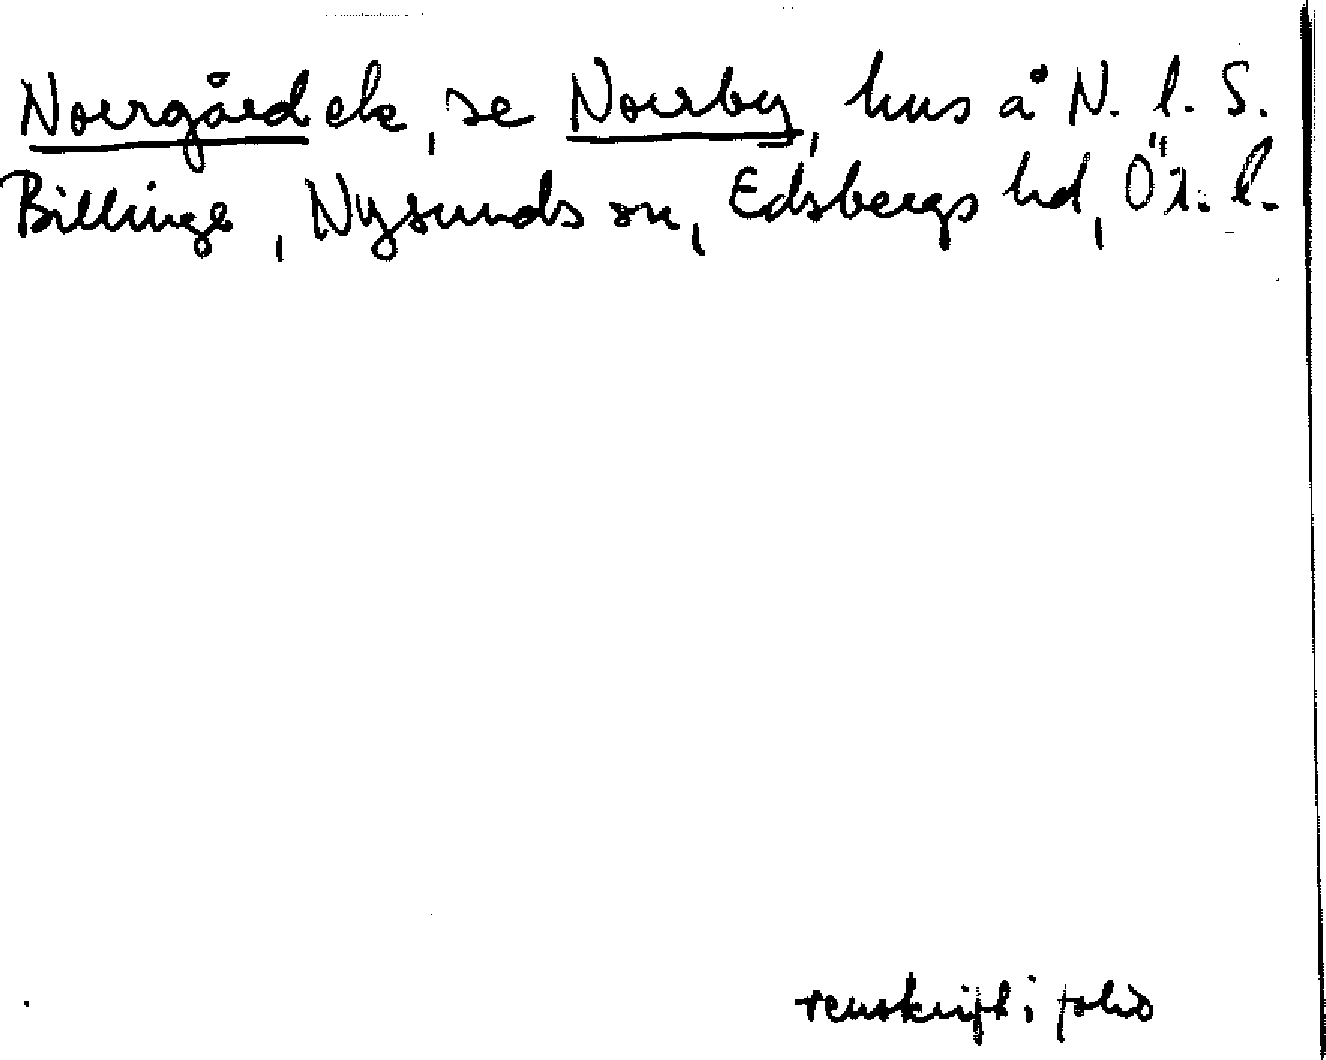 Norrgård etc, se Norrby, hus å N. l. S.
Billinge, Nysunds sn, Edsbergs hd, Ör. l.
renskrift i folio